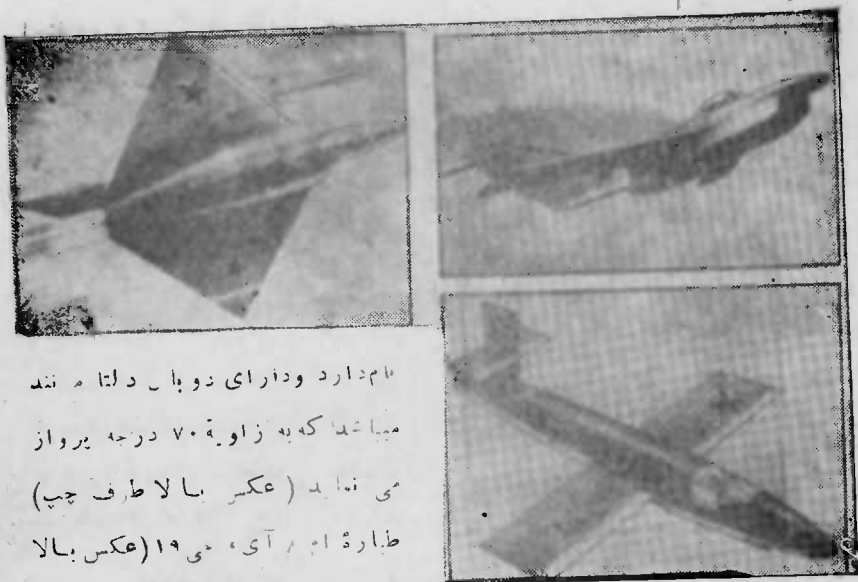 نام دارد و دارای دو بال دلتا مانند
میباشد که به زاویهٔ ۷۰ درجه پرواز
می نماید (عکس بالا طرف چپ)
طیارهٔ آی، ۱۹ (عکس بالا